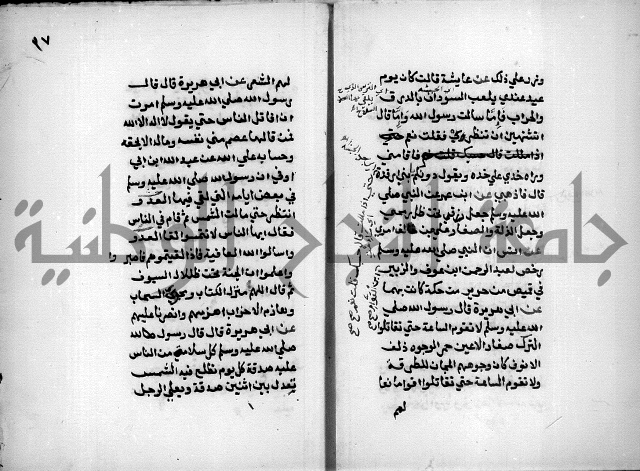 وزاد علي ذلك عن عايشة قالت كان يوم
عيد عندي يلعب السودان بالدرق
والحراب فإما سالت رسول الله وإما قال
اتشتهين ان تنظري فقلت نعم
اذا مللت قال حسبك قلت نعم فاقامني
وراه خدي علي خده ويقول دونكم بني ارفدة
قال فاذهبي عن ابن عمر عن النبي صلي
الله عليه وسلم جعل رزقي تحت ظل رمحي
وجعل الذلة والصغار علي من خالف امري
عن انس ان النبي صلي الله عليه وسلم
رخص لعبد الرحمن ابن عوف والزبير
في قميص من حرير من حكة كانت بهما
عن ابي هريرة قال رسول الله صلي
الله عليه وسلم لا تقوم الساعة حتي تقاتلوا
الترك صغار الاعين حمر الوجوه ذلف
الانوف كان وجوههم المجان المطرقة
ولا تقوم الساعة حتي تقاتلوا اقواما نعا
لهم
٢٧
لهم الشعر عن ابي هريرة قال قال
رسول الله صلي الله عليه وسلم امرت
ان اقاتل الناس حتي يقولوا لا اله الا الله
فمن قالها عصم مني نفسه وماله الا بحقه
وحسابه علي الله عن عبد الله ابن ابي
اوفي ان رسول الله صلي الله عليه وسلم
في بعض ايامه التي لقي فيها العدو
انتظر حتي مالت الشمس ثم قام في الناس
فقال ايها الناس لا تتمنوا لقا العدو
واسالوا الله العافية فاذا لقيتموهم فاصبروا
واعلموا ان الجنة تحت ظلال السيوف
ثم قال اللهم منزل الكتاب ومجري السحاب
وهازم الاحزاب اهزمهم وانصرنا عليهم
عن ابي هريرة قال قال رسول الله
صلي الله عليه وسلم كل سلامي من الناس
عليه صدقة كل يوم تطلع فيه الشمس
يعدل بين اثنين صدقة ويعين الرجل
جامعة النجاح الوطنية